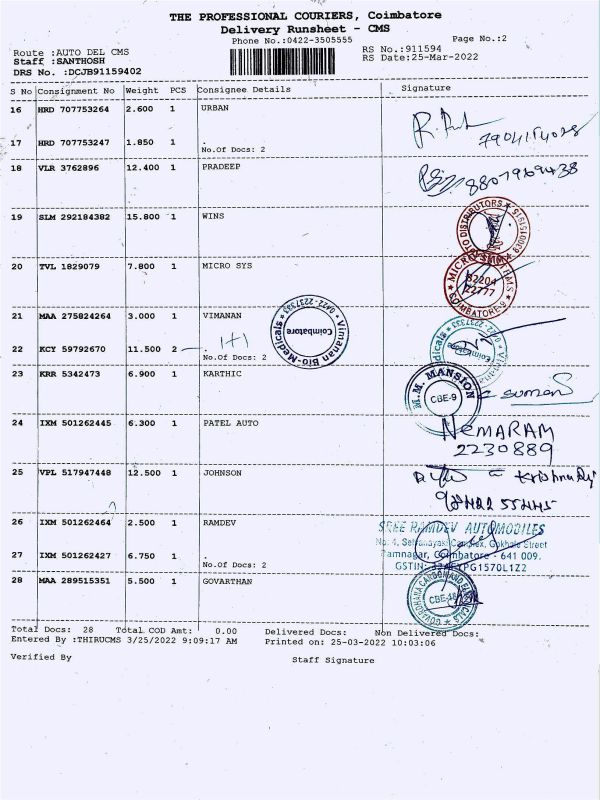 THE PROFESSIONAL COURIERS, Coimbatore
Delivery Runsheet - CMS
Phone No.:0422-3505555 Page No.:2
Route :AUTO DEL CMS RS No.:911594
Staff :SANTHOSH RS Date:25-Mar-2022
DRS No. :DCJB91159402
S No Consignment No Weight PCS Consignee Details Signature
16 HRD 707753264 2.600 1 URBAN
7904154028
17 HRD 707753247 1.850 1 .
No.Of Docs: 2
18 VLR 3762896 12.400 1 PRADEEP
8807969438
19 SLM 292184382 15.800 1 WINS
DISTRIBUTORS
20 TVL 1829079 7.800 1 MICRO SYS
MICRO
82204
22777
COIMBATORE-9
21 MAA 275824264 3.000 1 VIMANAN
Vimanan Bio-Medicals 0422-2237333
Coimbatore
22 KCY 59792670 11.500 2 .
1+1
No.Of Docs: 2
23 KRR 5342473 6.900 1 KARTHIC
M.M. MANSION
CBE-9
suman
24 IXM 501262445 6.300 1 PATEL AUTO
NEMARAM
2230889
25 VPL 517947448 12.500 1 JOHNSON
26 IXM 501262464 2.500 1 RAMDEV
SREE RAMDEV AUTOMOBILES
No: 4, Complex, Gokhale Street
Ramnagar, Coimbatore - 641 009.
27 IXM 501262427 6.750 1 .
No.Of Docs: 2
GSTIN:
28 MAA 289515351 5.500 1 GOVARTHAN
CBE-18
Total Docs: 28 Total COD Amt: 0.00 Delivered Docs: Non Delivered Docs:
Entered By :THIRUCMS 3/25/2022 9:09:17 AM Printed on: 25-03-2022 10:03:06
Verified By Staff Signature